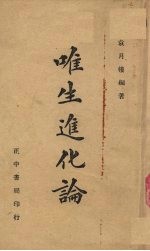 袁月樓編著
唯生進化論
正中書局印行